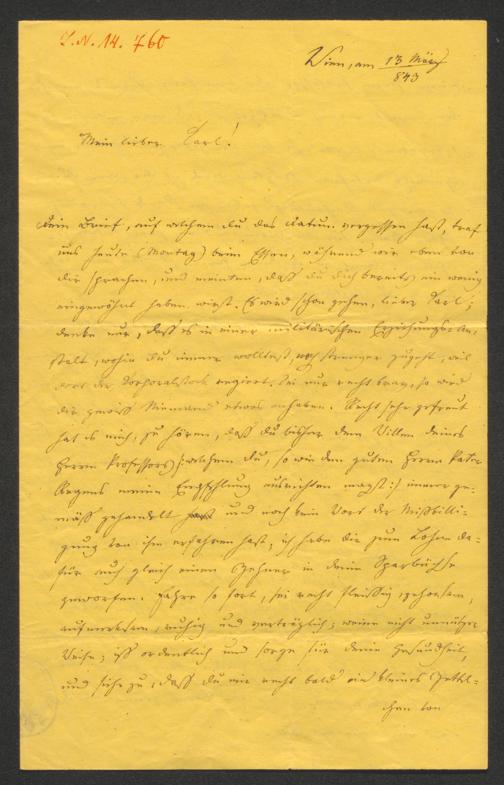 I.N. 14.760
Wien, am 13 März
843
Mein lieber Carl!
Dein Brief, auf welchem du das Datum vergessen hast, traf
uns heute (Montag) beim Essen, während wir eben von
dir sprachen, und meinten, daß du dich bereits ein wenig
eingewöhnt haben wirst. Es wird schon gehen, lieber Carl;
denke nur, daß es in einer militärischen Erziehungs-An-
stalt, wohin du immer wolltest, noch strenger zugeht, weil
dort der Corporalstock regiert. Sei nur recht brav, so wird
dir gewiß Niemand etwas anhaben. Recht sehr gefreut
hat es mich, zu hören, daß du bisher dem Willen deines
Herrn Professors (welchem du, so wie dem guten Herrn Pater
Regens meine Empfehlung ausrichten magst) immer ge-
mäß gehandelt und noch kein Wort der Mißbilli-
gung von ihm erfahren hast, ich habe dir zum Lohne da-
für auch gleich einen Zehner in deine Sparbüchse
geworfen. Fahre so fort, sei recht fleißig, gehorsam,
aufmerksam, ruhig und verträglich; weine nicht unnützer
Weise; iß ordentlich und sorge für deine Gesundheit,
und sieh zu, daß du mir recht bald ein kleines Zettel-
chen von